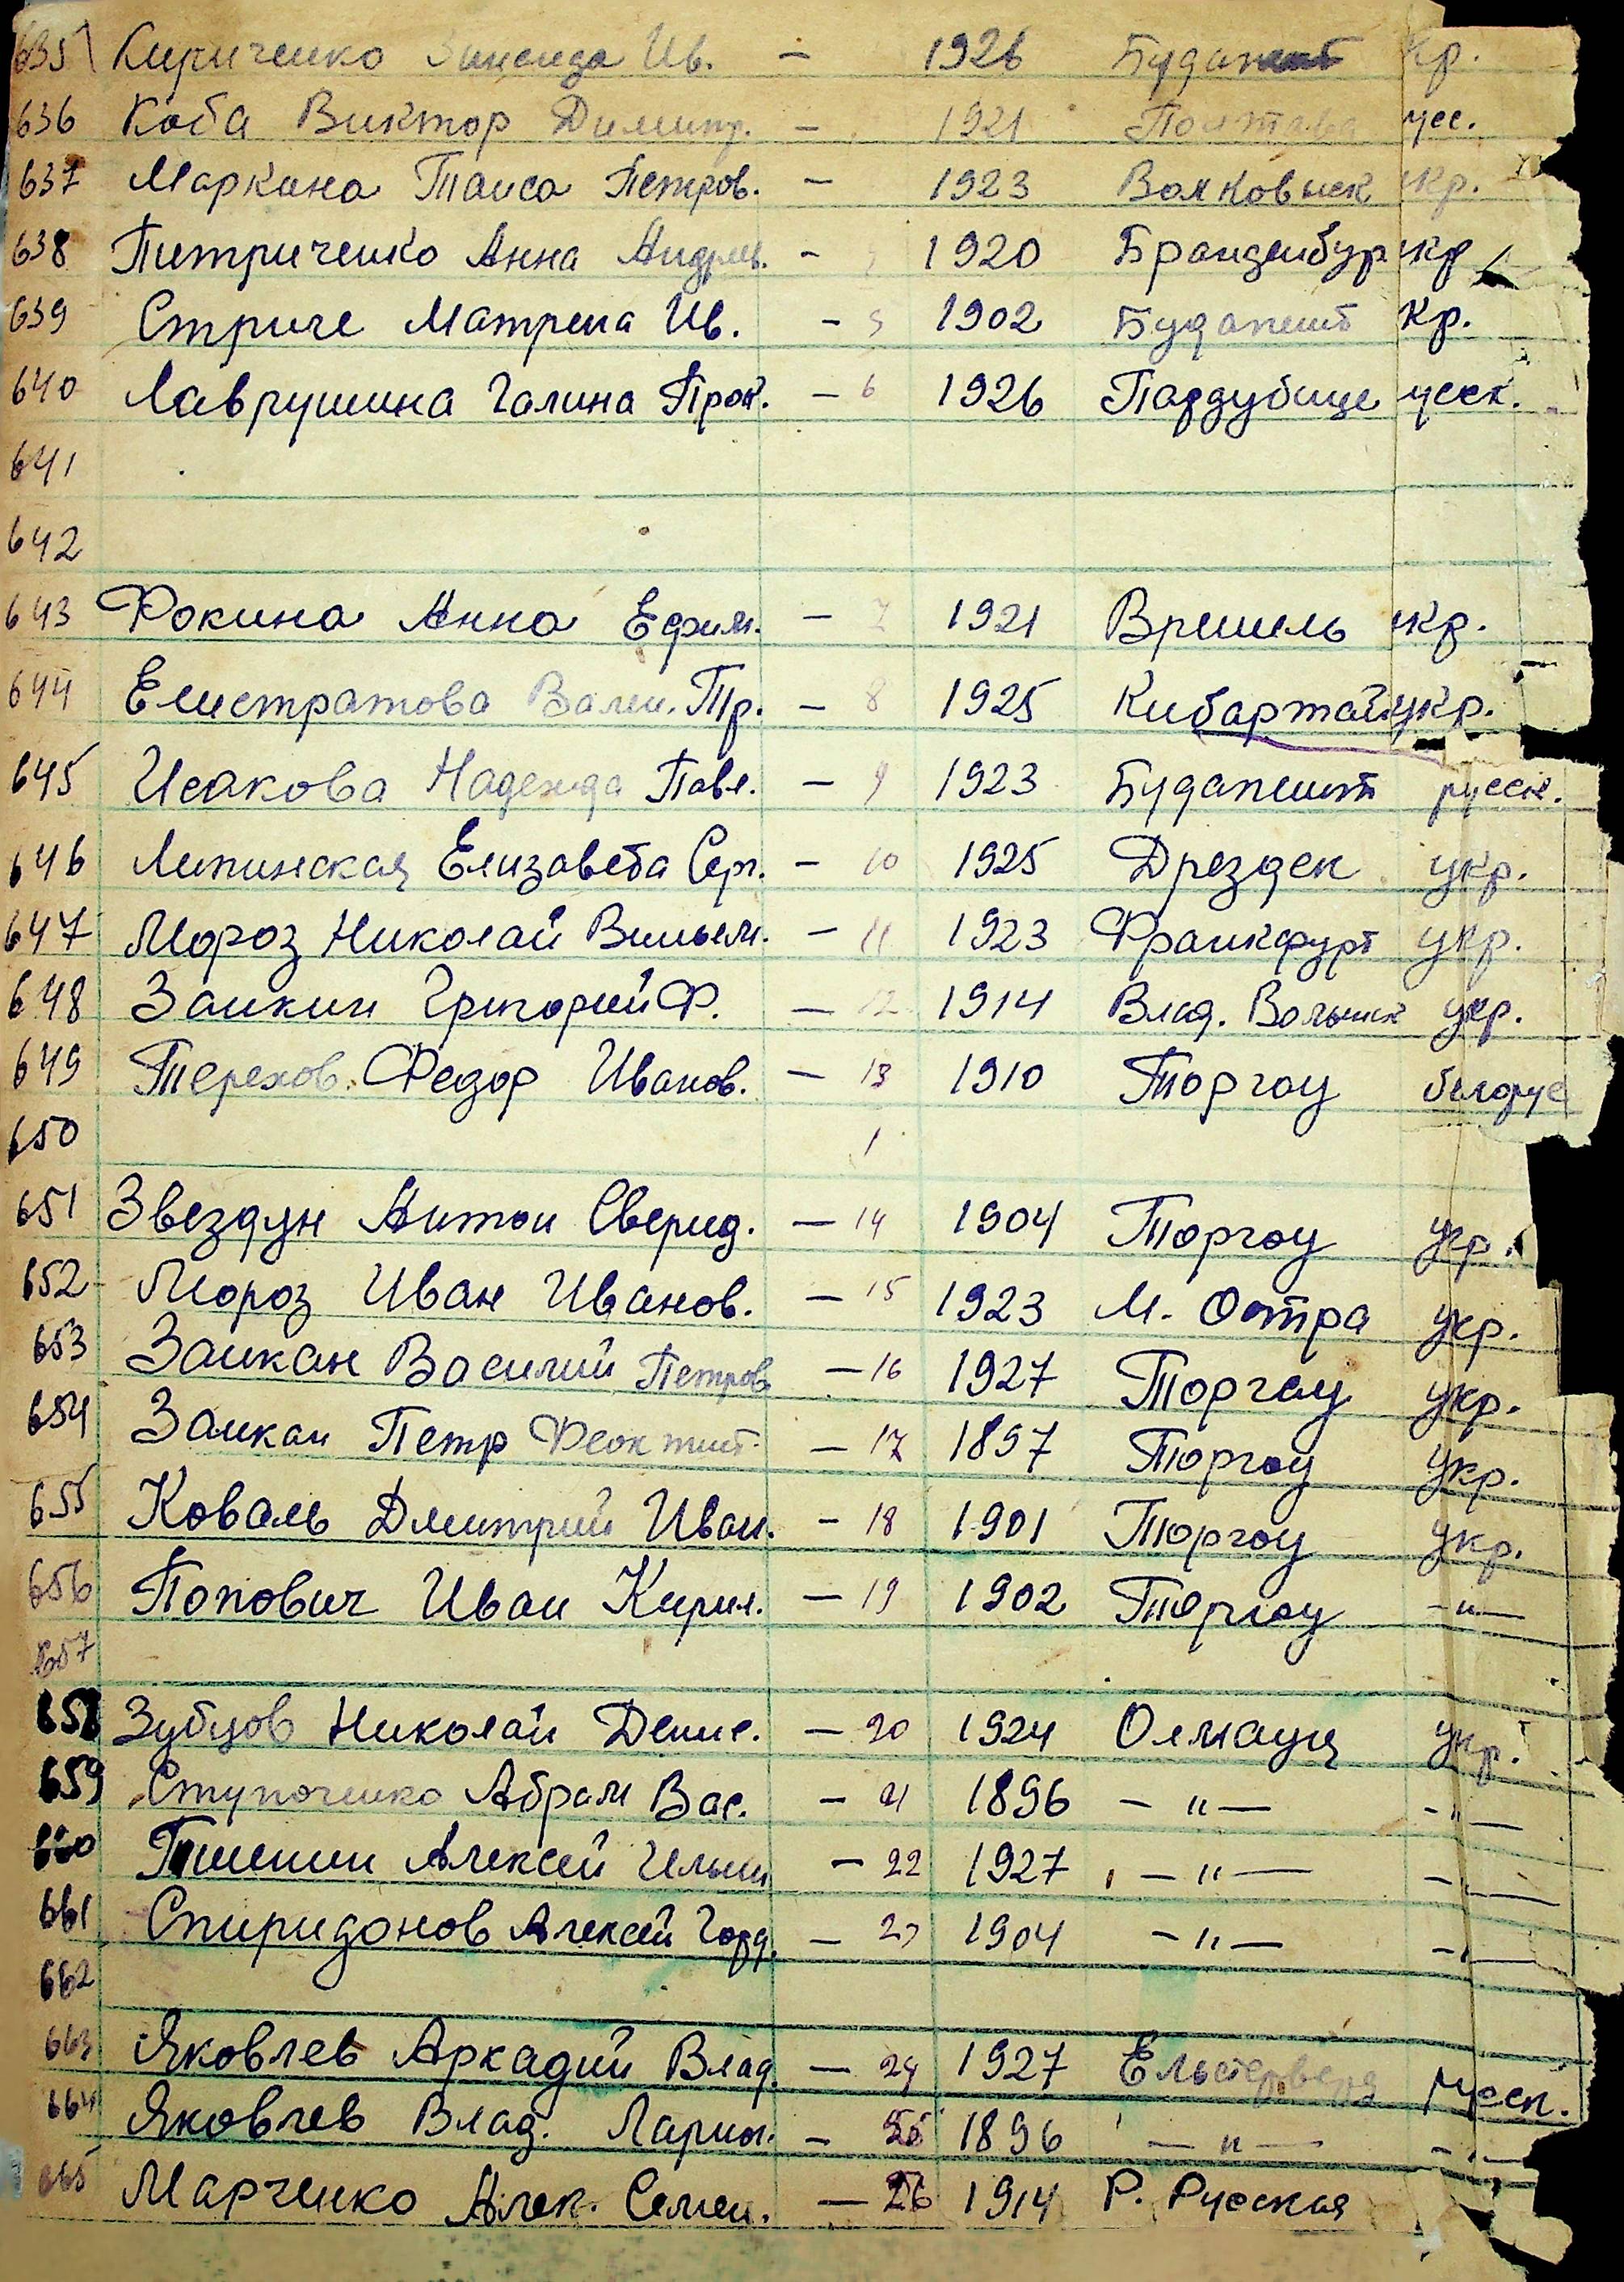 635 Кириченко Зинаида Ив. - 1926 Будапешт кр.
636 Коба Виктор Димитр. - 1921 Полтава усс.
637 Маркина Таиса Петров. - 1923 Волковыск кр.
638 Питриченко Анна Андреев. - 1920 Бранденбур кр
639 Стриге Матрена Ив. - 5 1902 Будапешт кр.
640 Лаврушина Галина Прок. - 6 1926 Пардубице усск.
641
642
643 Фокина Анна Ефим. - 7 1921 Вришель кр.
644 Елистратова Вален. Тр. - 8 1925 Кибартай укр.
645 Исакова Надежда Павл. - 9 1923 Будапешт русск.
646 Липинская Елизавета Сер. - 10 1925 Дрезден укр.
647 Мороз Николай Вильем. - 11 1923 Франкфурт укр.
648 Заикин Григорий Ф. - 12 1914 Влад. Волынск укр.
649 Терехов Федор Иванов. - 13 1910 Торгау белорус
650 1
651 Звездун Антон Сверид. - 14 1904 Торгау укр.
652 Мороз Иван Иванов. - 15 1923 М. Остра укр.
653 Заикан Василий Петров - 16 1927 Торгау укр.
654 Заикан Петр Феоктист. - 17 1897 Торгау укр.
655 Коваль Дмитрий Иван. - 18 1901 Торгау укр.
656 Попович Иван Кирил. - 19 1902 Торгау -"-
657
658 Зубцов Николай Денис. - 20 1924 Олмауц укр.
659 Ступоченко Абрам Вас. - 21 1896 -"- -"-
660 Алексей Ильич - 22 1927 -"- -"-
661 Спиридонов Алексей Горд. - 23 1904 -"- -"-
662
663 Яковлев Аркадий Влад. - 24 1927 Ельстерверд русск.
664 Яковлев Влад. Ларион. - 25 1896 -"- -"-
665 Марченко Алек. Семен. - 26 1914 Р. Русская